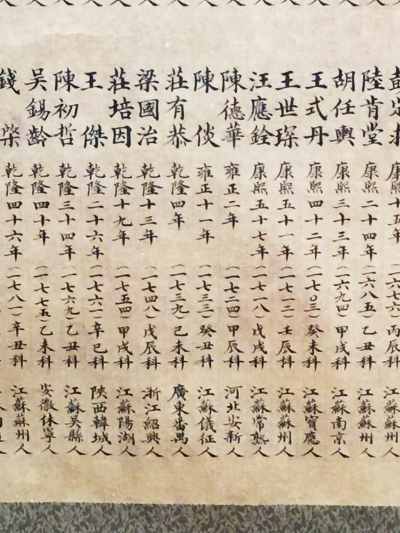 彭定求 康熙十五年（一六七六）丙辰科
陸肯堂 康熙二十四年（一六八五）乙丑科 江蘇蘇州人
胡任輿 康熙三十三年（一六九四）甲戌科 江蘇南京人
王式丹 康熙四十二年（一七〇三）癸未科 江蘇寶應人
王世琛 康熙五十一年（一七一二）壬辰科 江蘇蘇州人
汪應銓 康熙五十七年（一七一八）戊戌科 江蘇常熟人
陳德華 雍正二年（一七二四）甲辰科 河北安新人
陳倓 雍正十一年（一七三三）癸丑科 江蘇儀征人
莊有恭 乾隆四年（一七三九）己未科 廣東番禺人
梁國治 乾隆十三年（一七四八）戊辰科 浙江紹興人
莊培因 乾隆十九年（一七五四）甲戌科 江蘇陽湖人
王傑 乾隆二十六年（一七六一）辛巳科 陝西韓城人
陳初哲 乾隆三十四年（一七六九）乙丑科 江蘇吳縣人
吳錫齡 乾隆四十年（一七七五）乙未科 安徽休寧人
錢棨 乾隆四十六年（一七八一）辛丑科 江蘇蘇州人